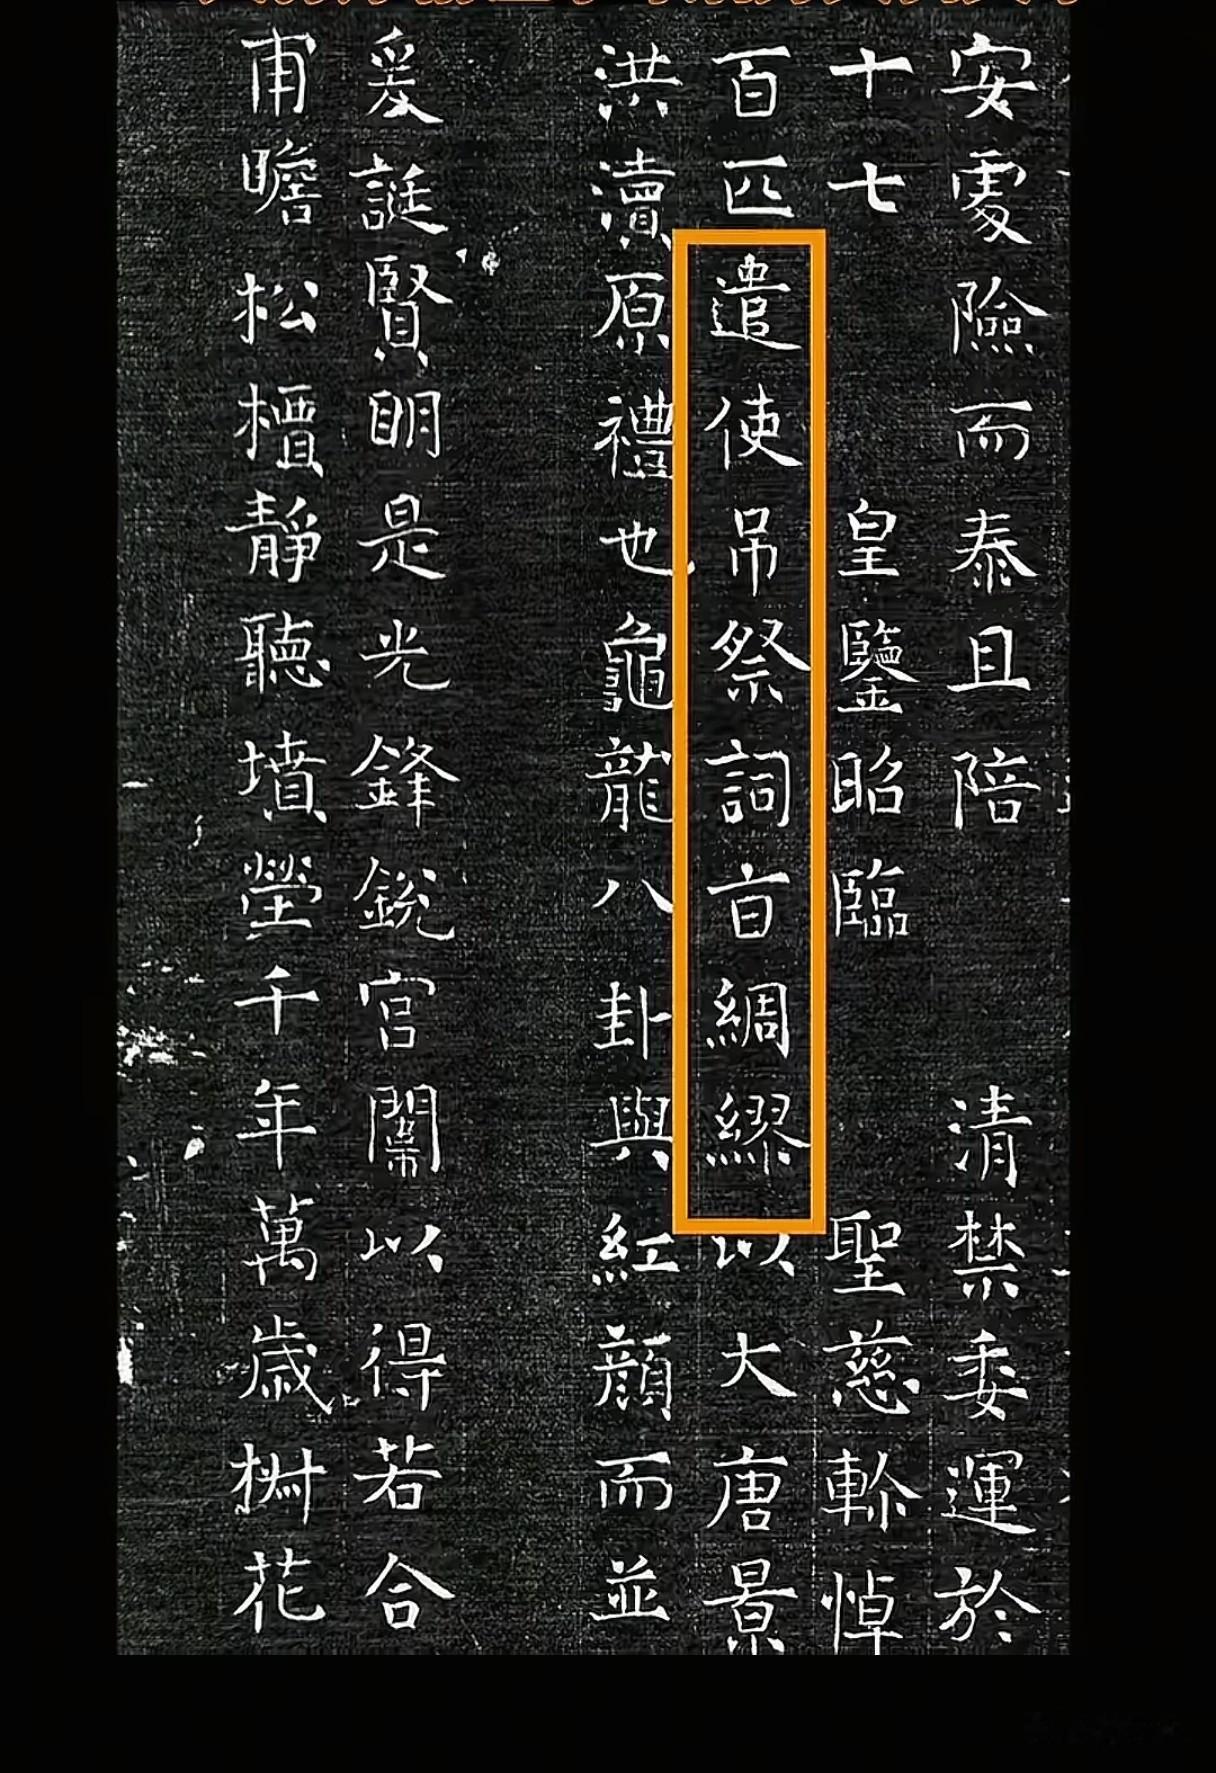 安處險而泰且陪 清禁委運於
十七 皇鑒昭臨 聖慈軫悼
百匹遣使吊祭詞旨綢繆以大唐景
洪瀆原禮也龜龍八卦與紅顔而並
爰誕賢明是光鋒銳宮闈以得若合
甫瞻松檟静聽墳塋千年萬歲椒花